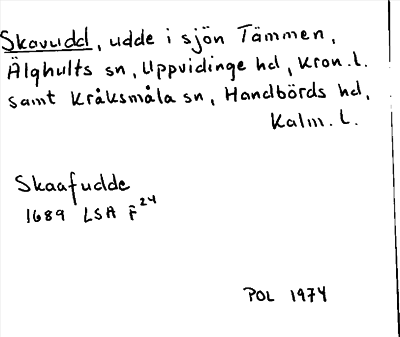 Skavudd, udde i sjön Tämmen,
Älghults sn, Uppvidinge hd, Kron. l.
samt Kråksmåla sn, Handbörds hd,
Kalm. l.
Skaafudde
1689 LSA F 24
POL 1974